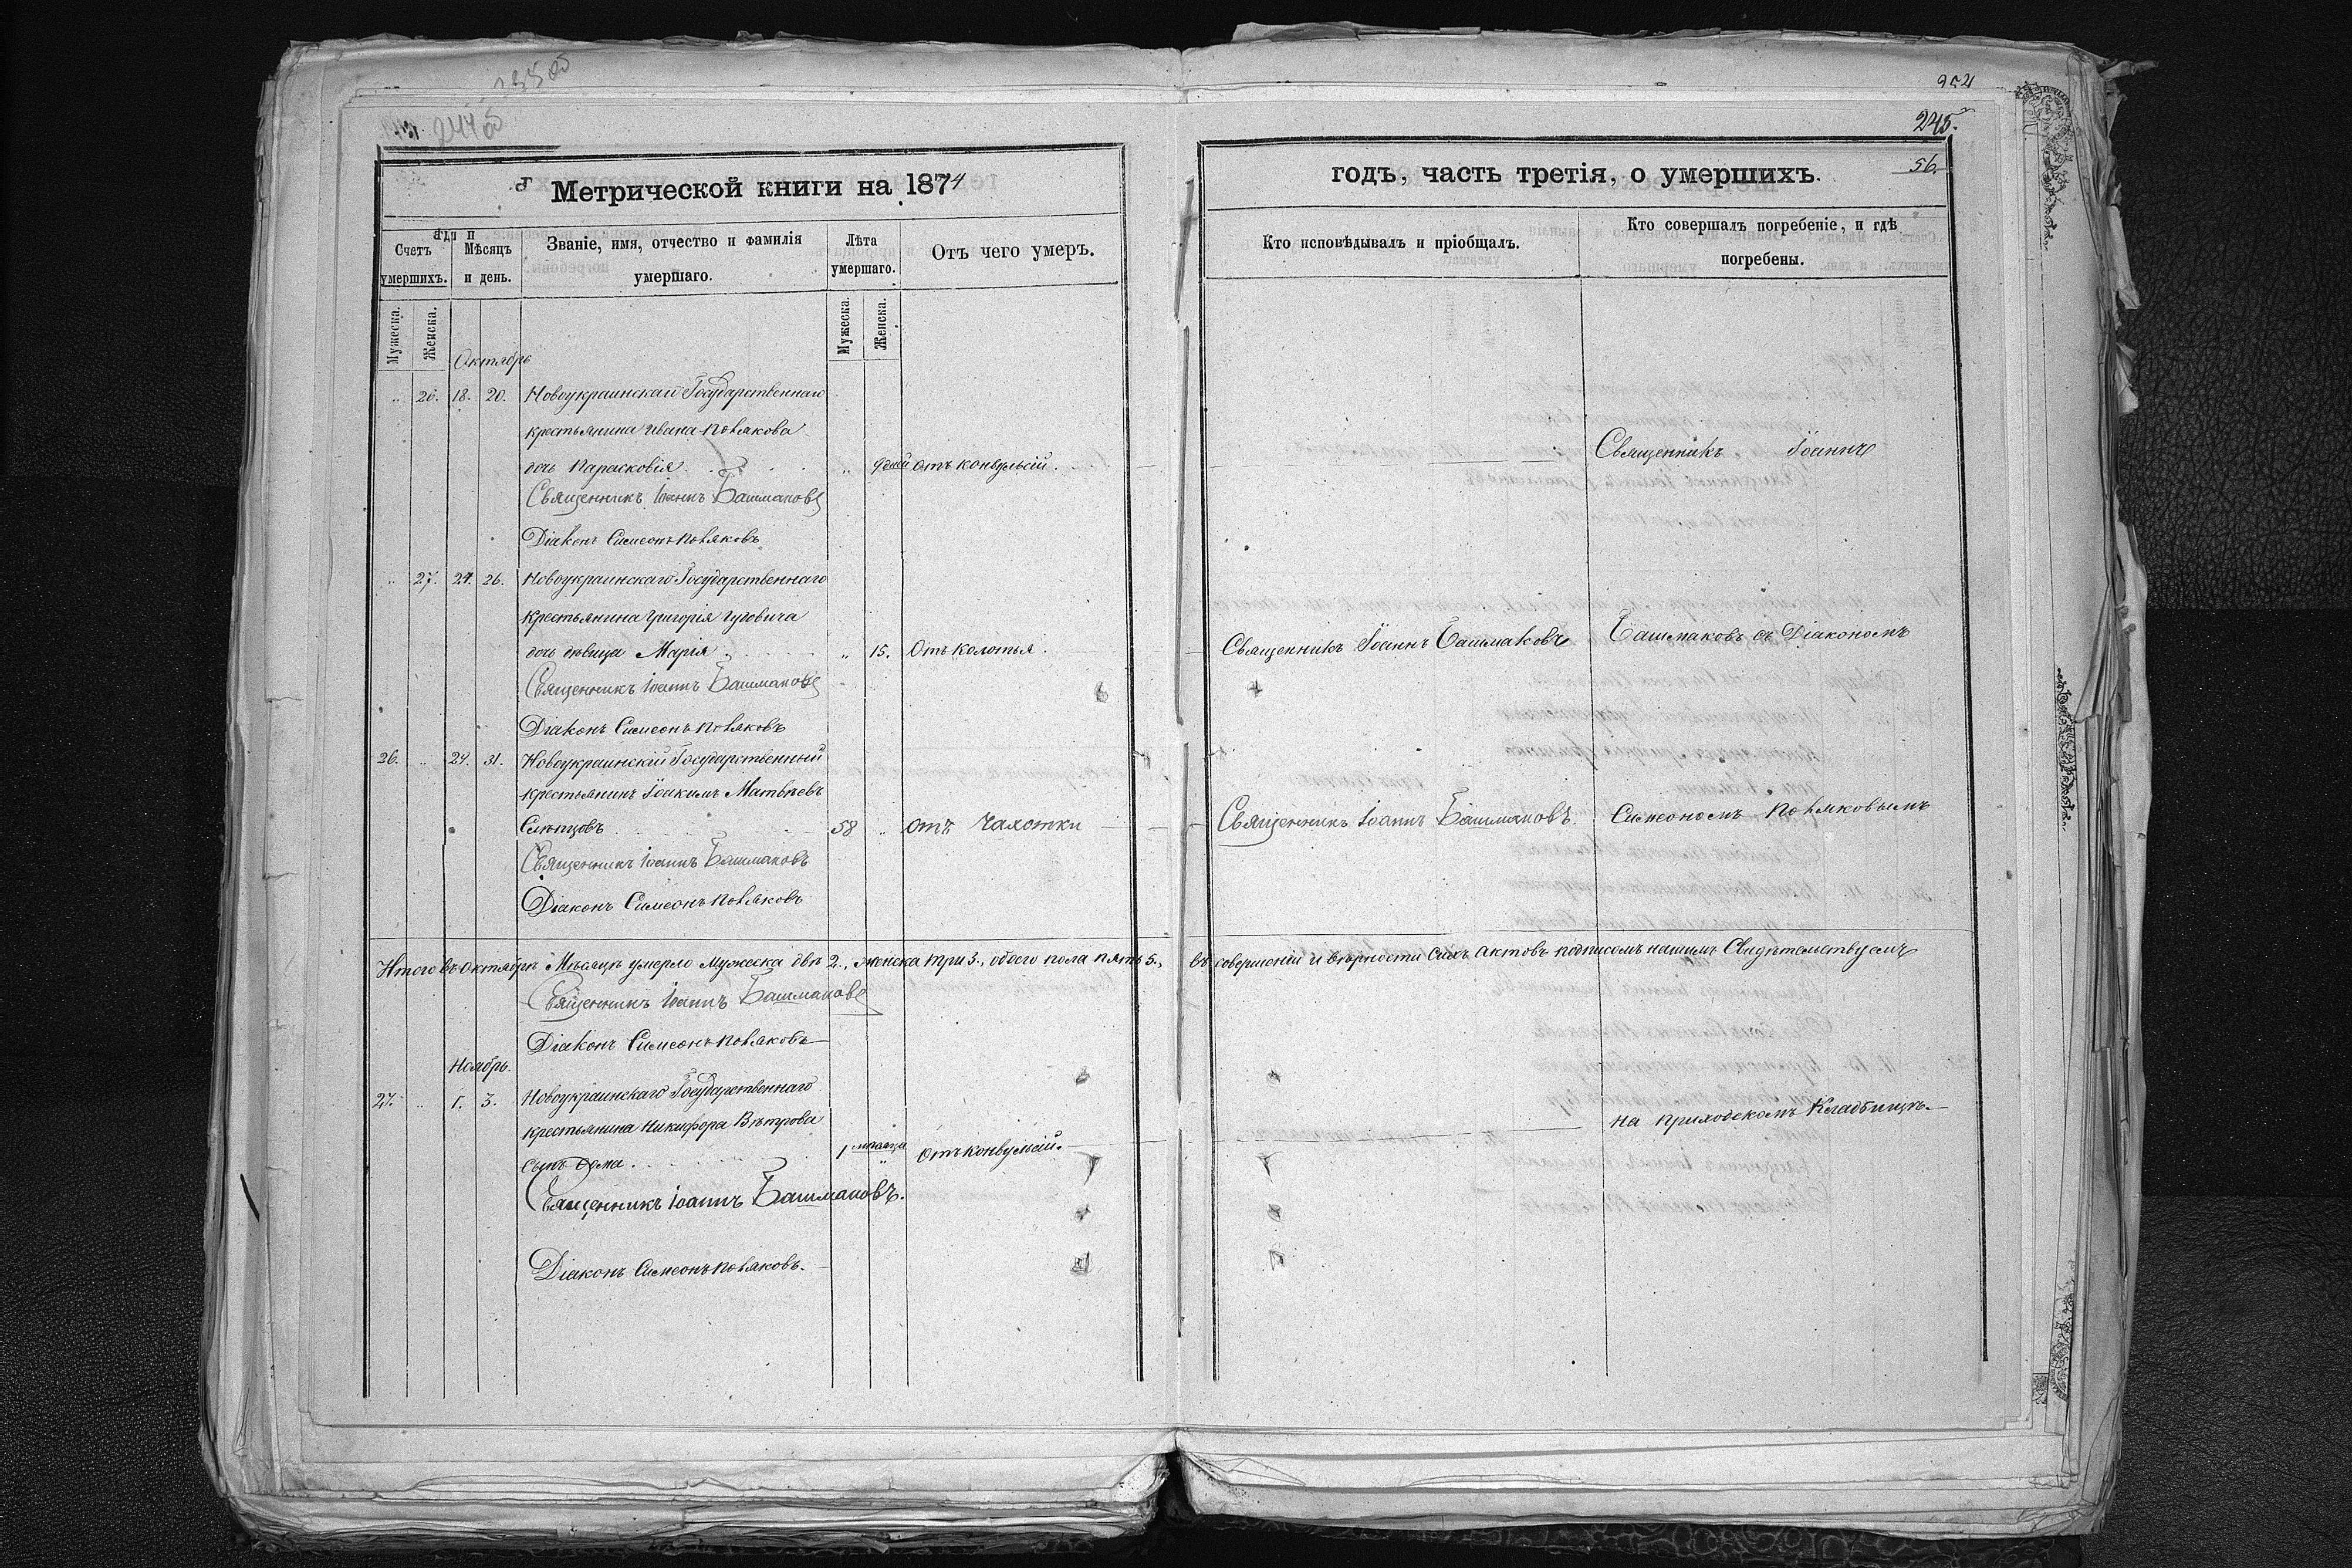 245.
56.
Метрической книги на 1874
годъ, часть третія, о умершихъ.
Счетъ умершихъ.
Мѣсяцъ и день.
Званіе, имя, отчество и фамилія умершаго.
Лѣта умершаго.
Отъ чего умеръ.
Кто исповѣдывалъ и пріобщалъ.
Кто совершалъ погребеніе, и гдѣ погребены.
Мужеска. Женска.
Мужеска. Женска.
Октябрь
„ 26. 18. 20. Новоукраинскаго Государственнаго
крестьянина Ивана Полякова
дочь Парасковія . . . „ дней отъ конвульсій.
Священникъ Іоаннъ
Священникъ Іоаннъ Башмаковъ
Діаконъ Симеонъ Поляковъ
„ 27. 24. 26. Новоукраинскаго Государственнаго
крестьянина Григорія
дочь дѣвица Марія . . . „ 15. Отъ колотья.
Священникъ Іоаннъ Башмаковъ
Башмаковъ съ Діакономъ
Священникъ Іоаннъ Башмаковъ
Діаконъ Симеонъ Поляковъ
26. „ 29. 31. Новоукраинскій Государственный
крестьянинъ Іоакимъ Матвѣевъ
Слѣпцовъ . . . 58 „ отъ Чахотки
Священникъ Іоаннъ Башмаковъ.
Симеономъ Поляковымъ
Священникъ Іоаннъ Башмаковъ
Діаконъ Симеонъ Поляковъ
Итого въ октябрѣ Мѣсяцѣ умерло Мужеска двѣ 2., женска три 3., обоего пола пять 5., въ совершеніи и вѣрности сихъ актовъ подписомъ нашимъ Свидѣтельствуемъ
Священникъ Іоаннъ Башмаковъ
Діаконъ Симеонъ Поляковъ
Ноябрь.
27. „ 1. 3. Новоукраинскаго Государственнаго
крестьянина Никифора Вѣтрова
сынъ . . . 1 мѣсяца „ Отъ конвульсій.
на приходскомъ Кладбищѣ.
Священникъ Іоаннъ Башмаковъ.
Діаконъ Симеонъ Поляковъ.